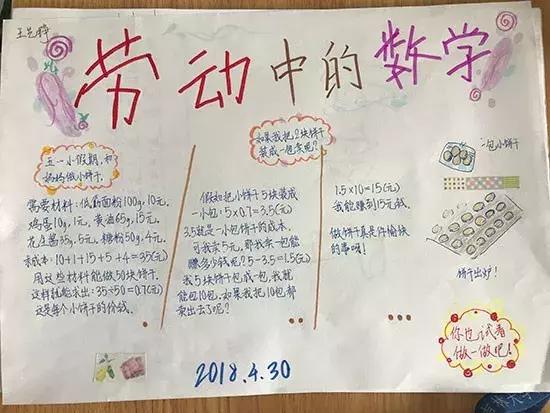 劳动中的数学
五一小假期,和
妈妈做小饼干。
需要材料:低筋面粉100g,10元,
鸡蛋10g,1元,黄油65g,15元,
花生酱35g,5元,糖粉50g,4元。
成本:10+1+15+5+4=35(元)
用这些材料能做50块饼干。
这样就能求出:35÷50=0.7(元)
这是每个小饼干的价钱。
如果我把2块饼干
装成一包卖呢?
假如把小饼干5块装成
一小包:5×0.7=3.5(元)
3.5就是一小包饼干的成本,
可我卖5元,那我卖一包能
赚多少钱呢?5-3.5=1.5(元)
我5块饼干包成一包,我就
能包10包,如果我把10包都
卖出去了呢?
1.5×10=15(元)
我能赚到15元钱。
做饼干真是件愉快
的事呀!
一包小饼干
饼干出炉!
你也试着
做一做吧!
2018.4.30